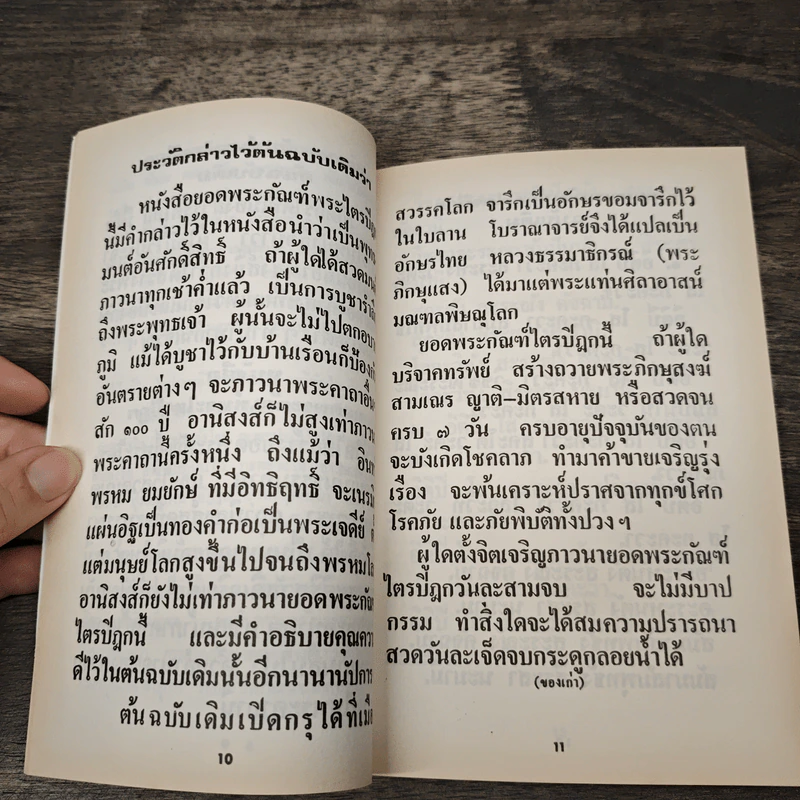 ประวัติกล่าวไว้ต้นฉบับเดิมว่า
หนังสือยอดพระกัณฑ์พระไตรปิฎก
นี้มีคำกล่าวไว้ในหนังสือนำว่าเป็นพุทธ
มนต์อันศักดิ์สิทธิ์ ถ้าผู้ใดได้สวดมนต์
ภาวนาทุกเช้าค่ำแล้ว เป็นการบูชารำลึก
ถึงพระพุทธเจ้า ผู้นั้นจะไม่ไปตกอบาย
ภูมิ แม้ได้บูชาไว้กับบ้านเรือนก็ป้องกัน
อันตรายต่างๆ จะภาวนาพระคาถาอื่น
สัก ๑๐๐ ปี อานิสงส์ก็ไม่สูงเท่าภาวนา
พระคาถานี้ครั้งหนึ่ง ถึงแม้ว่า
พรหม ยมยักษ์ ที่มีอิทธิฤทธิ์ จะเนรมิต
แผ่นอิฐเป็นทองคำก่อเป็นพระเจดีย์
แต่มนุษย์โลกสูงขึ้นไปจนถึงพรหมโลก
อานิสงส์ก็ยังไม่เท่าภาวนายอดพระกัณฑ์
ไตรปิฎกนี้ และมีคำอธิบายคุณความ
ดีไว้ในต้นฉบับเดิมนั้นอีกนานานัปการ
ต้นฉบับเดิมเปิดกรุได้ที่เมือง
10
สวรรคโลก จารึกเป็นอักษรขอมจารึกไว้
ในใบลาน โบราณาจารย์จึงได้แปลเป็น
อักษรไทย หลวงธรรมาธิกรณ์ (พระ
ภิกษุแสง) ได้มาแต่พระแท่นศิลาอาสน์
มณฑลพิษณุโลก
ยอดพระกัณฑ์ไตรปิฎกนี้ ถ้าผู้ใด
บริจาคทรัพย์ สร้างถวายพระภิกษุสงฆ์
สามเณร ญาติ–มิตรสหาย หรือสวดจน
ครบ ๗ วัน ครบอายุปัจจุบันของตน
จะบังเกิดโชคลาภ ทำมาค้าขายเจริญรุ่ง
เรือง จะพ้นเคราะห์ปราศจากทุกข์โศก
โรคภัย และภัยพิบัติทั้งปวงๆ
ผู้ใดตั้งจิตเจริญภาวนายอดพระกัณฑ์
ไตรปิฎกวันละสามจบ จะไม่มีบาป
กรรม ทำสิ่งใดจะได้สมความปรารถนา
สวดวันละเจ็ดจบกระดูกลอยน้ำได้
(ของเก่า)
11